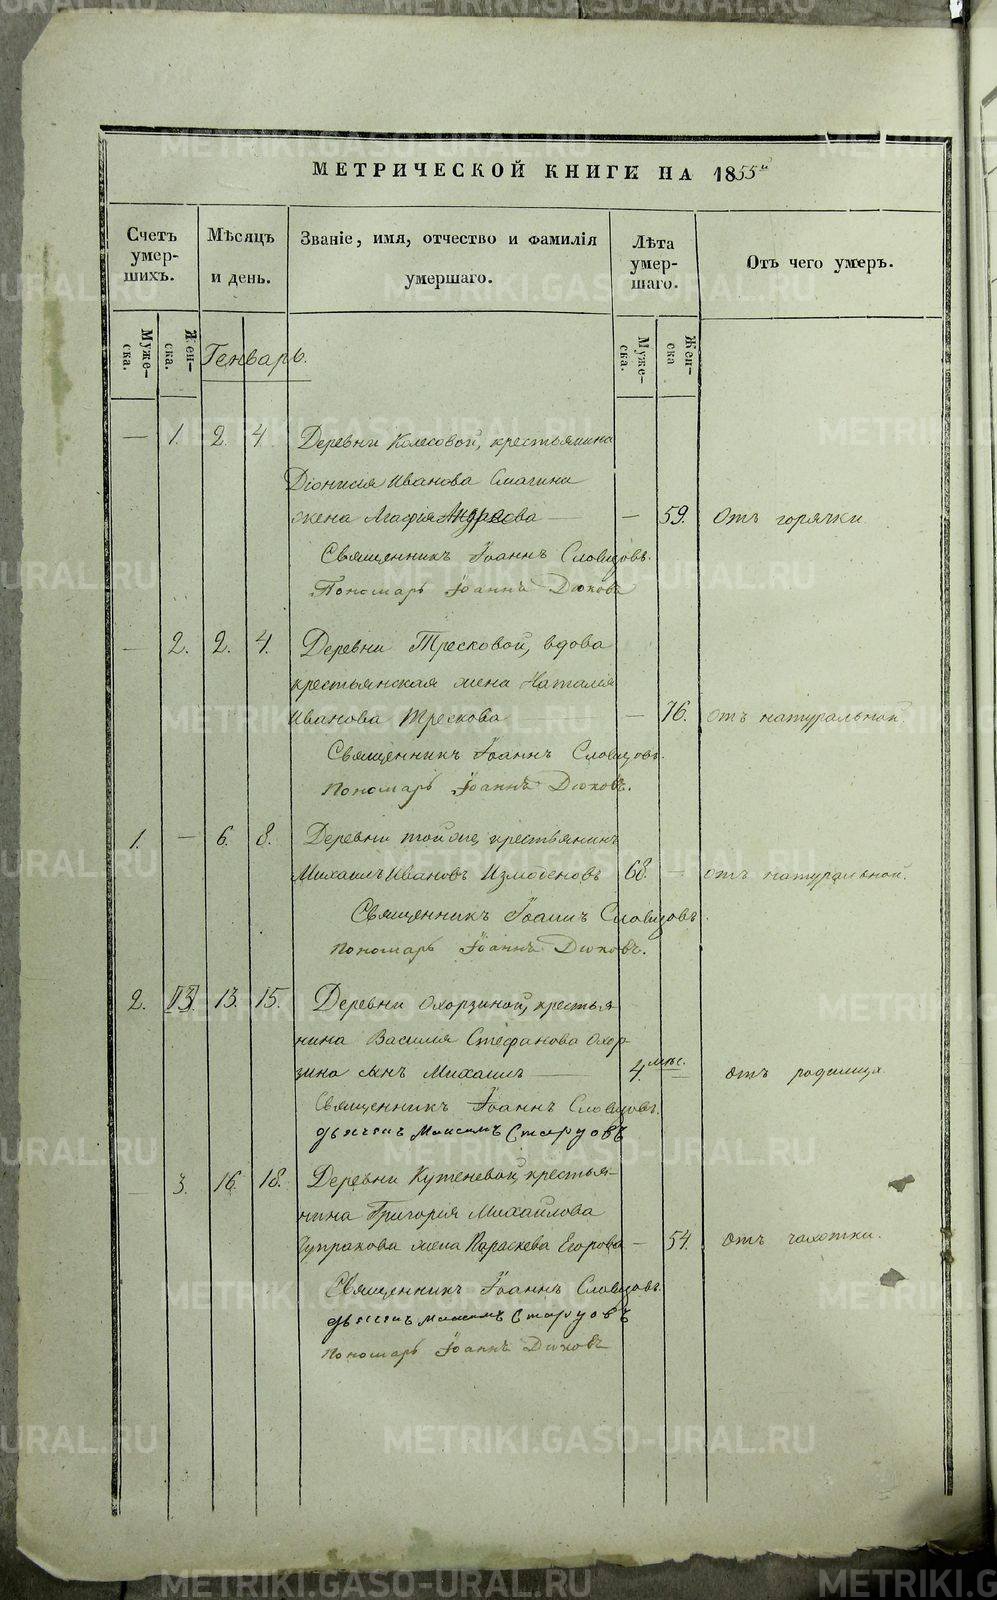 МЕТРИЧЕСКОЙ КНИГИ НА 1855й
Счетъ умер-шихъ.
Мѣсяцъ и день.
Званіе, имя, отчество и фамилія умершаго.
Лѣта умер-шаго.
Отъ чего умеръ.
Муже-ска.
Жен-ска.
Генварь.
Муже-ска.
Жен-ска
— 1. 2. 4. Деревни Колесовой, крестьянина
Діонисія Иванова Смагина
жена Агафія Андреова — — 59. Отъ горячки.
Священникъ Іоаннъ Словцовъ.
Пономарь Іоаннъ Дюковъ
— 2. 2. 4. Деревни Тресковой, вдова
крестьянская жена Наталія
Иванова Трескова — 76. отъ натуральной.
Священникъ Іоаннъ Словцовъ.
Пономарь Іоаннъ Дюковъ.
1. — 6. 8. Деревни тойже, крестьянинъ
Михаилъ Ивановъ Измоденовъ 68. — отъ натуральной.
Священникъ Іоаннъ Словцовъ.
Пономарь Іоаннъ Дюковъ.
2. 13. 15. Деревни Охорзиной, крестья
нина Василія Стефанова Охор
зина сынъ Михаилъ — 4. мѣс. — отъ родимца
Священникъ Іоаннъ Словцовъ.
дьячекъ Максимъ Старцовъ
— 3. 16. 18. Деревни Кутеневой, крестья-
нина Григорія Михайлова
Чупракова жена Параскева Егорова — 54. отъ чахотки.
Священникъ Іоаннъ Словцовъ.
дьячекъ Максимъ Старцовъ
Пономарь Іоаннъ Дюковъ
METRIKI.GASO-URAL.RU